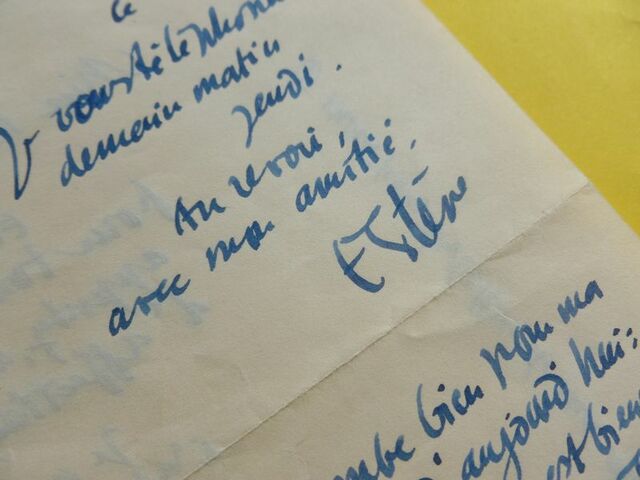 ce
Je vous télépho
demain matin
jeudi.
Au revoir,
avec mon amitié.
Estève
mbe bien pour ma
aujourd'hui:
est bien